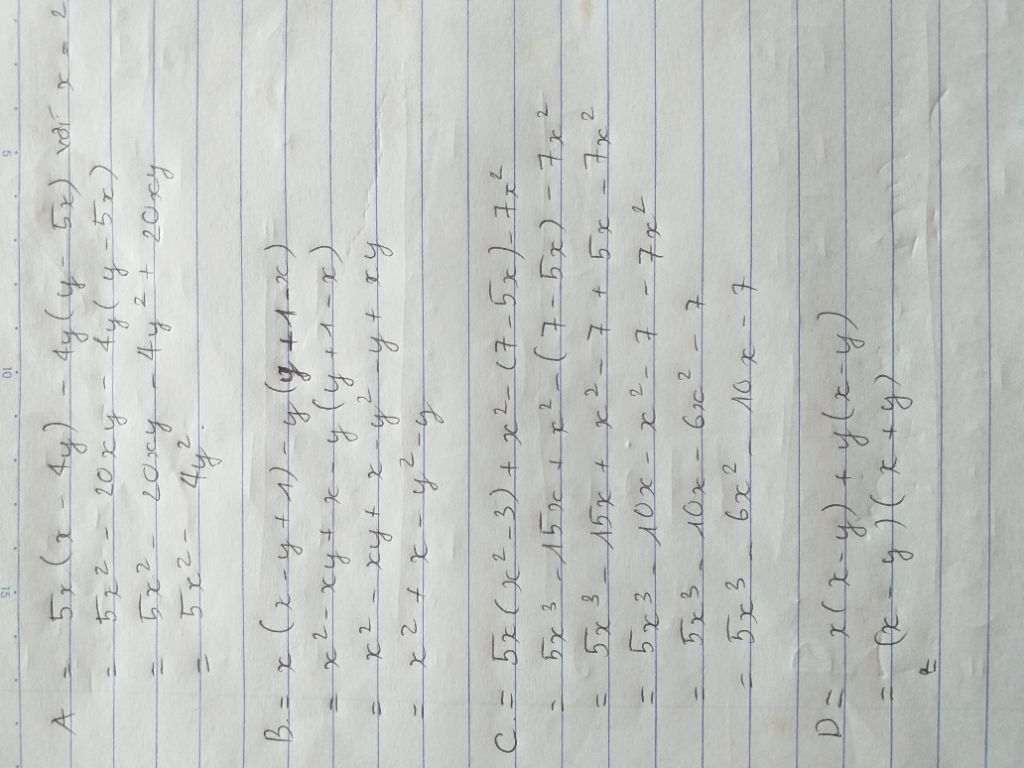 A = 5x(x - 4y) - 4y(y - 5x) với x = 2
= 5x² - 20xy - 4y(y - 5x)
= 5x² - 20xy - 4y² + 20xy
= 5x² - 4y².
B = x(x - y + 1) - y(y + 1 - x)
= x² - xy + x - y(y + 1 - x)
= x² - xy + x - y² - y + xy
= x² + x - y² - y
C = 5x(x² - 3) + x² - (7 - 5x) - 7x²
= 5x³ - 15x + x² - (7 - 5x) - 7x²
= 5x³ - 15x + x² - 7 + 5x - 7x²
= 5x³ - 10x - x² - 7 - 7x²
= 5x³ - 10x - 6x² - 7
= 5x³ - 6x² - 10x - 7
D = x(x - y) + y(x - y)
= (x - y)(x + y)